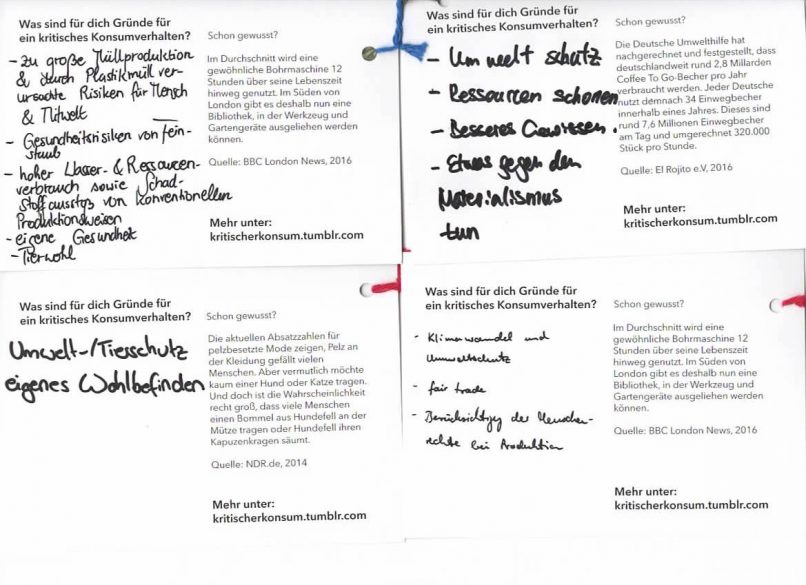 Was sind für dich Gründe für
ein kritisches Konsumverhalten?
- zu große Müllproduktion
& durch Plastikmüll ver-
ursachte Risiken für Mensch
& Mitwelt
- Gesundheitsrisiken von Fein-
staub
- hoher Wasser- & Ressourcen-
verbrauch sowie Schad-
stoffausstoß von konventionellen
Produktionsweisen
- eigene Gesundheit
- Tierwohl
Schon gewusst?
Im Durchschnitt wird eine
gewöhnliche Bohrmaschine 12
Stunden über seine Lebenszeit
hinweg genutzt. Im Süden von
London gibt es deshalb nun eine
Bibliothek, in der Werkzeug und
Gartengeräte ausgeliehen werden
können.
Quelle: BBC London News, 2016
Mehr unter:
kritischerkonsum.tumblr.com
Was sind für dich Gründe für
ein kritisches Konsumverhalten?
- Umweltschutz
- Ressourcen schonen
- Besseres Gewissen.
- Etwas gegen den
Materialismus
tun
Schon gewusst?
Die Deutsche Umwelthilfe hat
nachgerechnet und festgestellt, dass
deutschlandweit rund 2,8 Millarden
Coffee To Go-Becher pro Jahr
verbraucht werden. Jeder Deutsche
nutzt demnach 34 Einwegbecher
innerhalb eines Jahres. Dieses sind
rund 7,6 Millionen Einwegbecher
am Tag und umgerechnet 320.000
Stück pro Stunde.
Quelle: El Rojito e.V, 2016
Mehr unter:
kritischerkonsum.tumblr.com
Was sind für dich Gründe für
ein kritisches Konsumverhalten?
Umwelt-/Tierschutz
eigenes Wohlbefinden
Schon gewusst?
Die aktuellen Absatzzahlen für
pelzbesetzte Mode zeigen, Pelz an
der Kleidung gefällt vielen
Menschen. Aber vermutlich möchte
kaum einer Hund oder Katze tragen.
Und doch ist die Wahrscheinlichkeit
recht groß, dass viele Menschen
einen Bommel aus Hundefell an der
Mütze tragen oder Hundefell ihren
Kapuzenkragen säumt.
Quelle: NDR.de, 2014
Mehr unter:
kritischerkonsum.tumblr.com
Was sind für dich Gründe für
ein kritisches Konsumverhalten?
- Klimawandel und
Umweltschutz
- fair trade
- Berücksichtigung der Menschen-
rechte bei Produktion
Schon gewusst?
Im Durchschnitt wird eine
gewöhnliche Bohrmaschine 12
Stunden über seine Lebenszeit
hinweg genutzt. Im Süden von
London gibt es deshalb nun eine
Bibliothek, in der Werkzeug und
Gartengeräte ausgeliehen werden
können.
Quelle: BBC London News, 2016
Mehr unter:
kritischerkonsum.tumblr.com